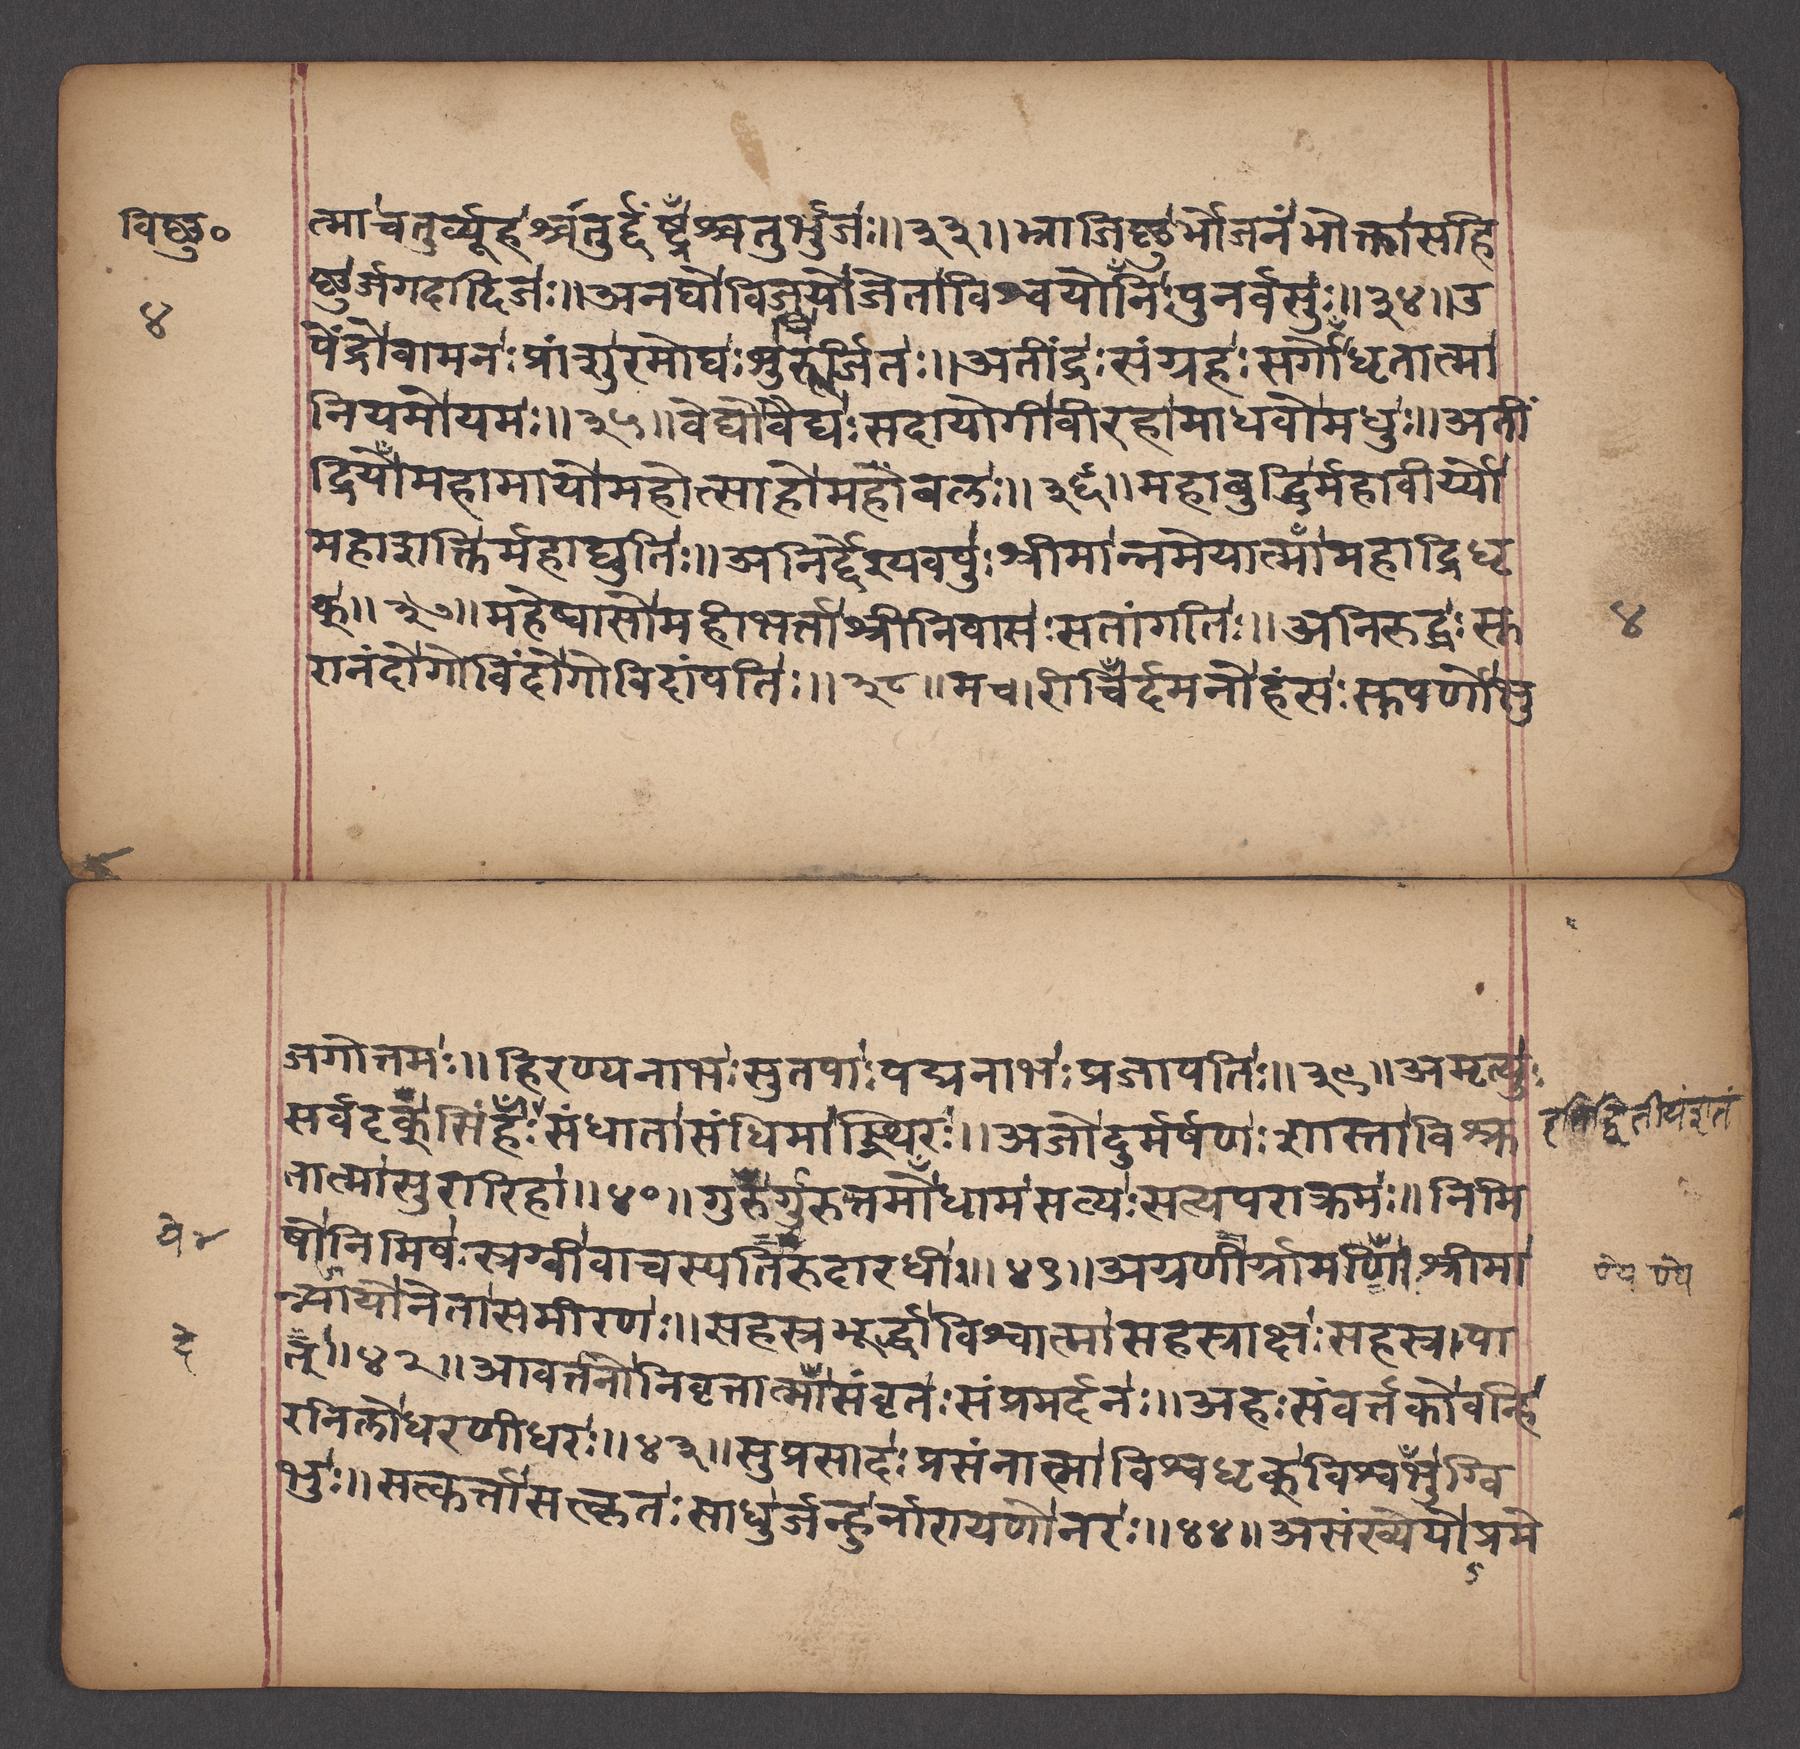 विष्णु०
४
त्माचतुर्व्यूहश्चतुर्द्दंष्ट्रश्चतुर्भुजः॥३३॥भ्राजिष्णुर्भोजनंभोक्तासहि
ष्णुर्जगदादिजः॥अनघोविजयोजेताविश्वयोनिःपुनर्वसुः॥३४॥उ
पेंद्रोवामनःप्रांशुरमोघःशुचिरूर्जितः॥अतींद्रःसंग्रहःसर्गोधृतात्मा
नियमोयमः॥३५॥वेद्योवैद्यःसदायोगीवीरहामाधवोमधुः॥अतीं
द्रियोमहामायोमहोत्साहोमहाबलः॥३६॥महाबुद्धिर्महावीर्य्यो
महाशक्तिर्महाद्युतिः॥अनिर्द्देश्यवपुःश्रीमान्नमेयात्मामहाद्रिधृ
क्॥३७॥महेष्वासोमहीभर्त्ताश्रीनिवासःसतांगतिः॥अनिरुद्धःसु
रानंदोगोविंदोगोविदांपतिः॥३८॥मच।रीचिर्दमनोहंसःसुपर्णोभु
४
जगोत्तमः॥हिरण्यनाभःसुतपाःपद्मनाभःप्रजापतिः॥३९॥अमृत्युः
सर्वदृक्सिंहःसंधातासंधिमांस्थिरः॥अजोदुर्मर्षणःशास्ताविश्रु
तात्मासुरारिहा॥४०॥गुरुर्गुरुत्तमोधामसत्यःसत्यपराक्रमः॥निमि
षोनिमिषःस्रग्वीवाचस्पतिरुदारधीः॥४१॥अग्रणीर्ग्रामणीःश्रीमा
न्न्यायोनेतासमीरणः॥सहस्रमूर्द्धाविश्वात्मासहस्राक्षःसहस्र।पा
त्॥४२॥आवर्त्तनोनिवृत्तात्मासंवृतःसंप्रमर्दनः॥अहःसंवर्त्तकोवन्हि
रनिलोधरणीधरः॥४३॥सुप्रसादःप्रसंनात्माविश्वधृक्विश्वभुग्वि
भुः॥सत्कर्त्तासत्कृतःसाधुर्जन्हुर्नारायणोनरः॥४४॥असंख्येयोप्रमे